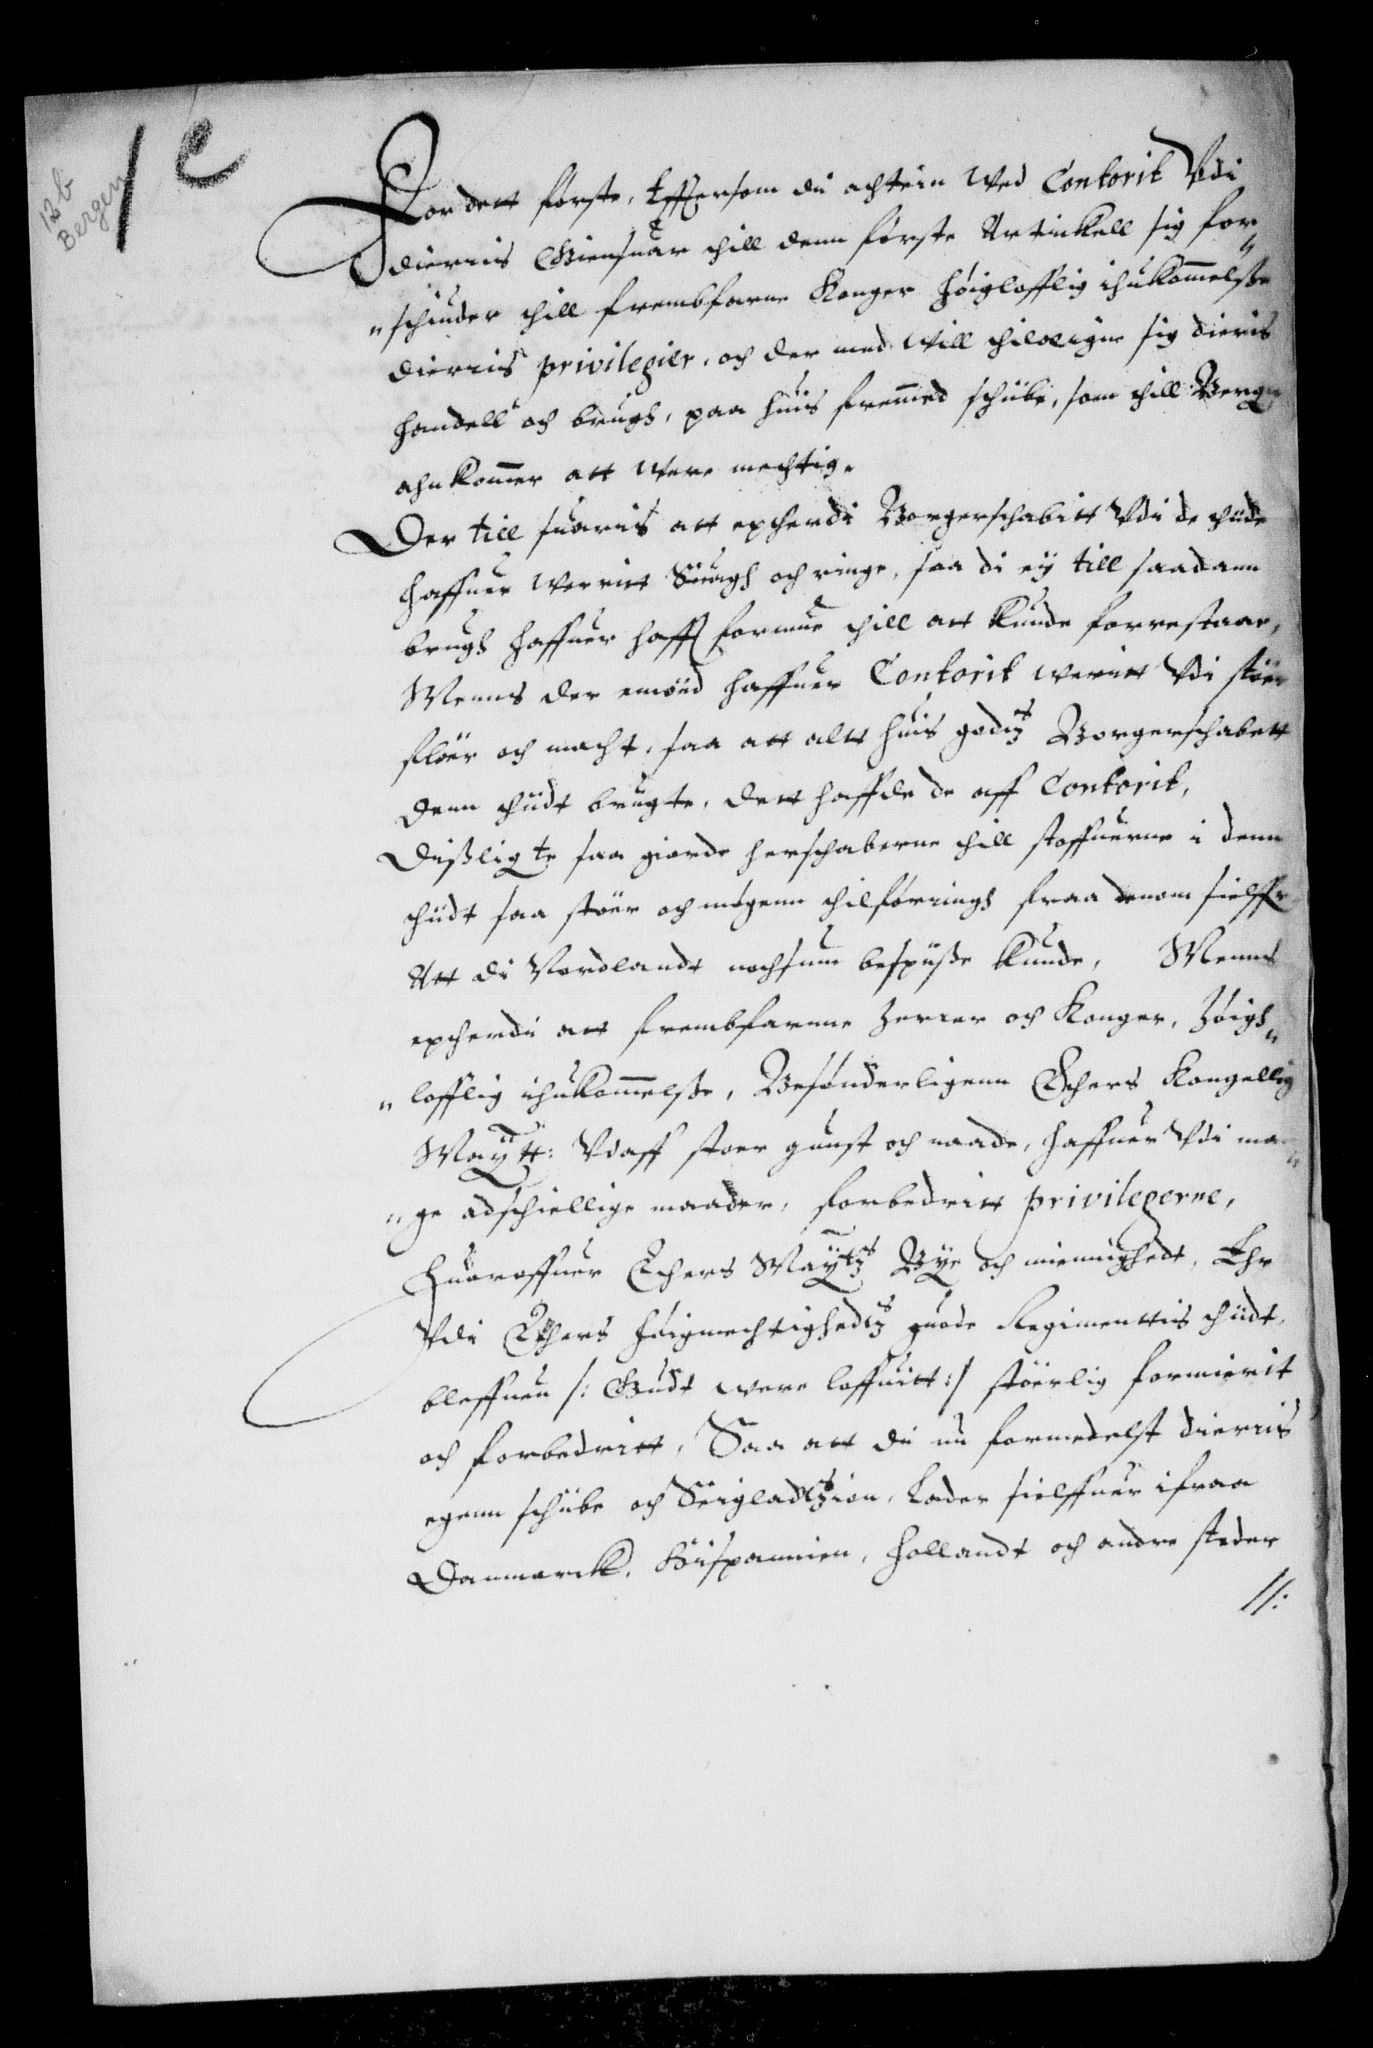 12b
Bergen
1 e
For dett første, Effersom di achtein Wed Contorit Vdi
dierris Giensuar thill denn første Artinkell sig for¬
"schiuder thill frembfarne Konger høiglofflig ihukommelsse
dierris privilegier, och der med will thileigne sig dieris
handell och brugh, paa huis fremmed schiibe, som thill Bergen
ahnkommer att were mechtig.
Der till suaris att epcherdi Borgerschabitt Vdi de thiide
haffuer werritt Suagh och ringe, saa di eÿ till saadann
brugh haffuer hafft formue thill att kunde forrestaae,
Menns der emod haffuer Contorit weritt Vdi stoer
floer och macht, saa att alt huis godtz Borgerschabett
denn thiidt brugte, dett haffde de aff Contorit,
Disligte saa giorde herschaberne thill stoffuerne i denn
thiidt saa stoer och mögenn thilførringh fraa denom sielffe
Att di Nordlandt nochsum bespiisse kunde, Menns
epcherdi att frembfarnne herrer och Konger, höigh¬
"lofflig ihukommelsse, Besønderligenn Ethers Kongellig
Maÿtt: Vdaff stoer gunst och naade, haffuer Vdi man¬
"ge adschiellige maader, forbedritt privilegerne,
Huoroffuer Ethers Maÿtz Bÿe och miennighedt, Ehr
Vdi Ethers høigmechtighedtz guode Regimenttis thiidt,
bleffuen /: Gudt were loffuitt :/ stoerlig formierit
och forbedritt, Saa att di nu formedelst dierris
egenn schiibe och Seigladtzion, Lader sielffuer ifraa
Danmarck, Hispannien, Hollandt och andre steder
//: